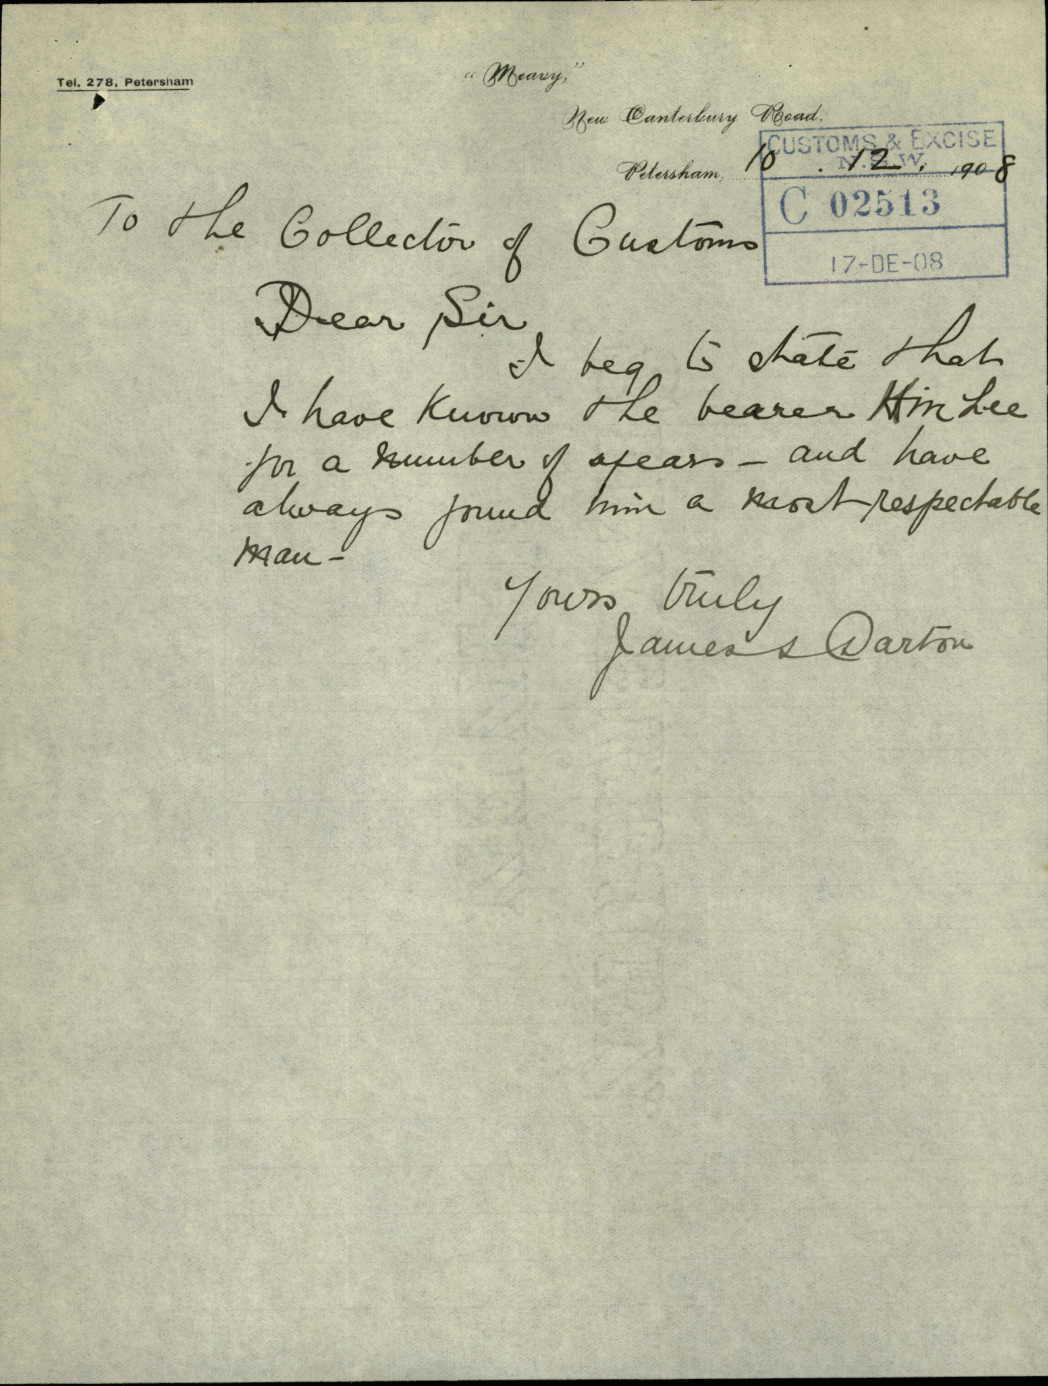 Tel. 278, Petersham
"Meavy,"
New Canterbury Road.
Petersham, 10 . 12 . 1908
CUSTOMS & EXCISE
N.S.W.
C 02513
17-DE-08
To the Collector of Customs
Dear Sir
I beg to state that
I have known the bearer Him Lee
for a number of years – and have
always found him a most respectable
man –
Yours truly
James S Barton